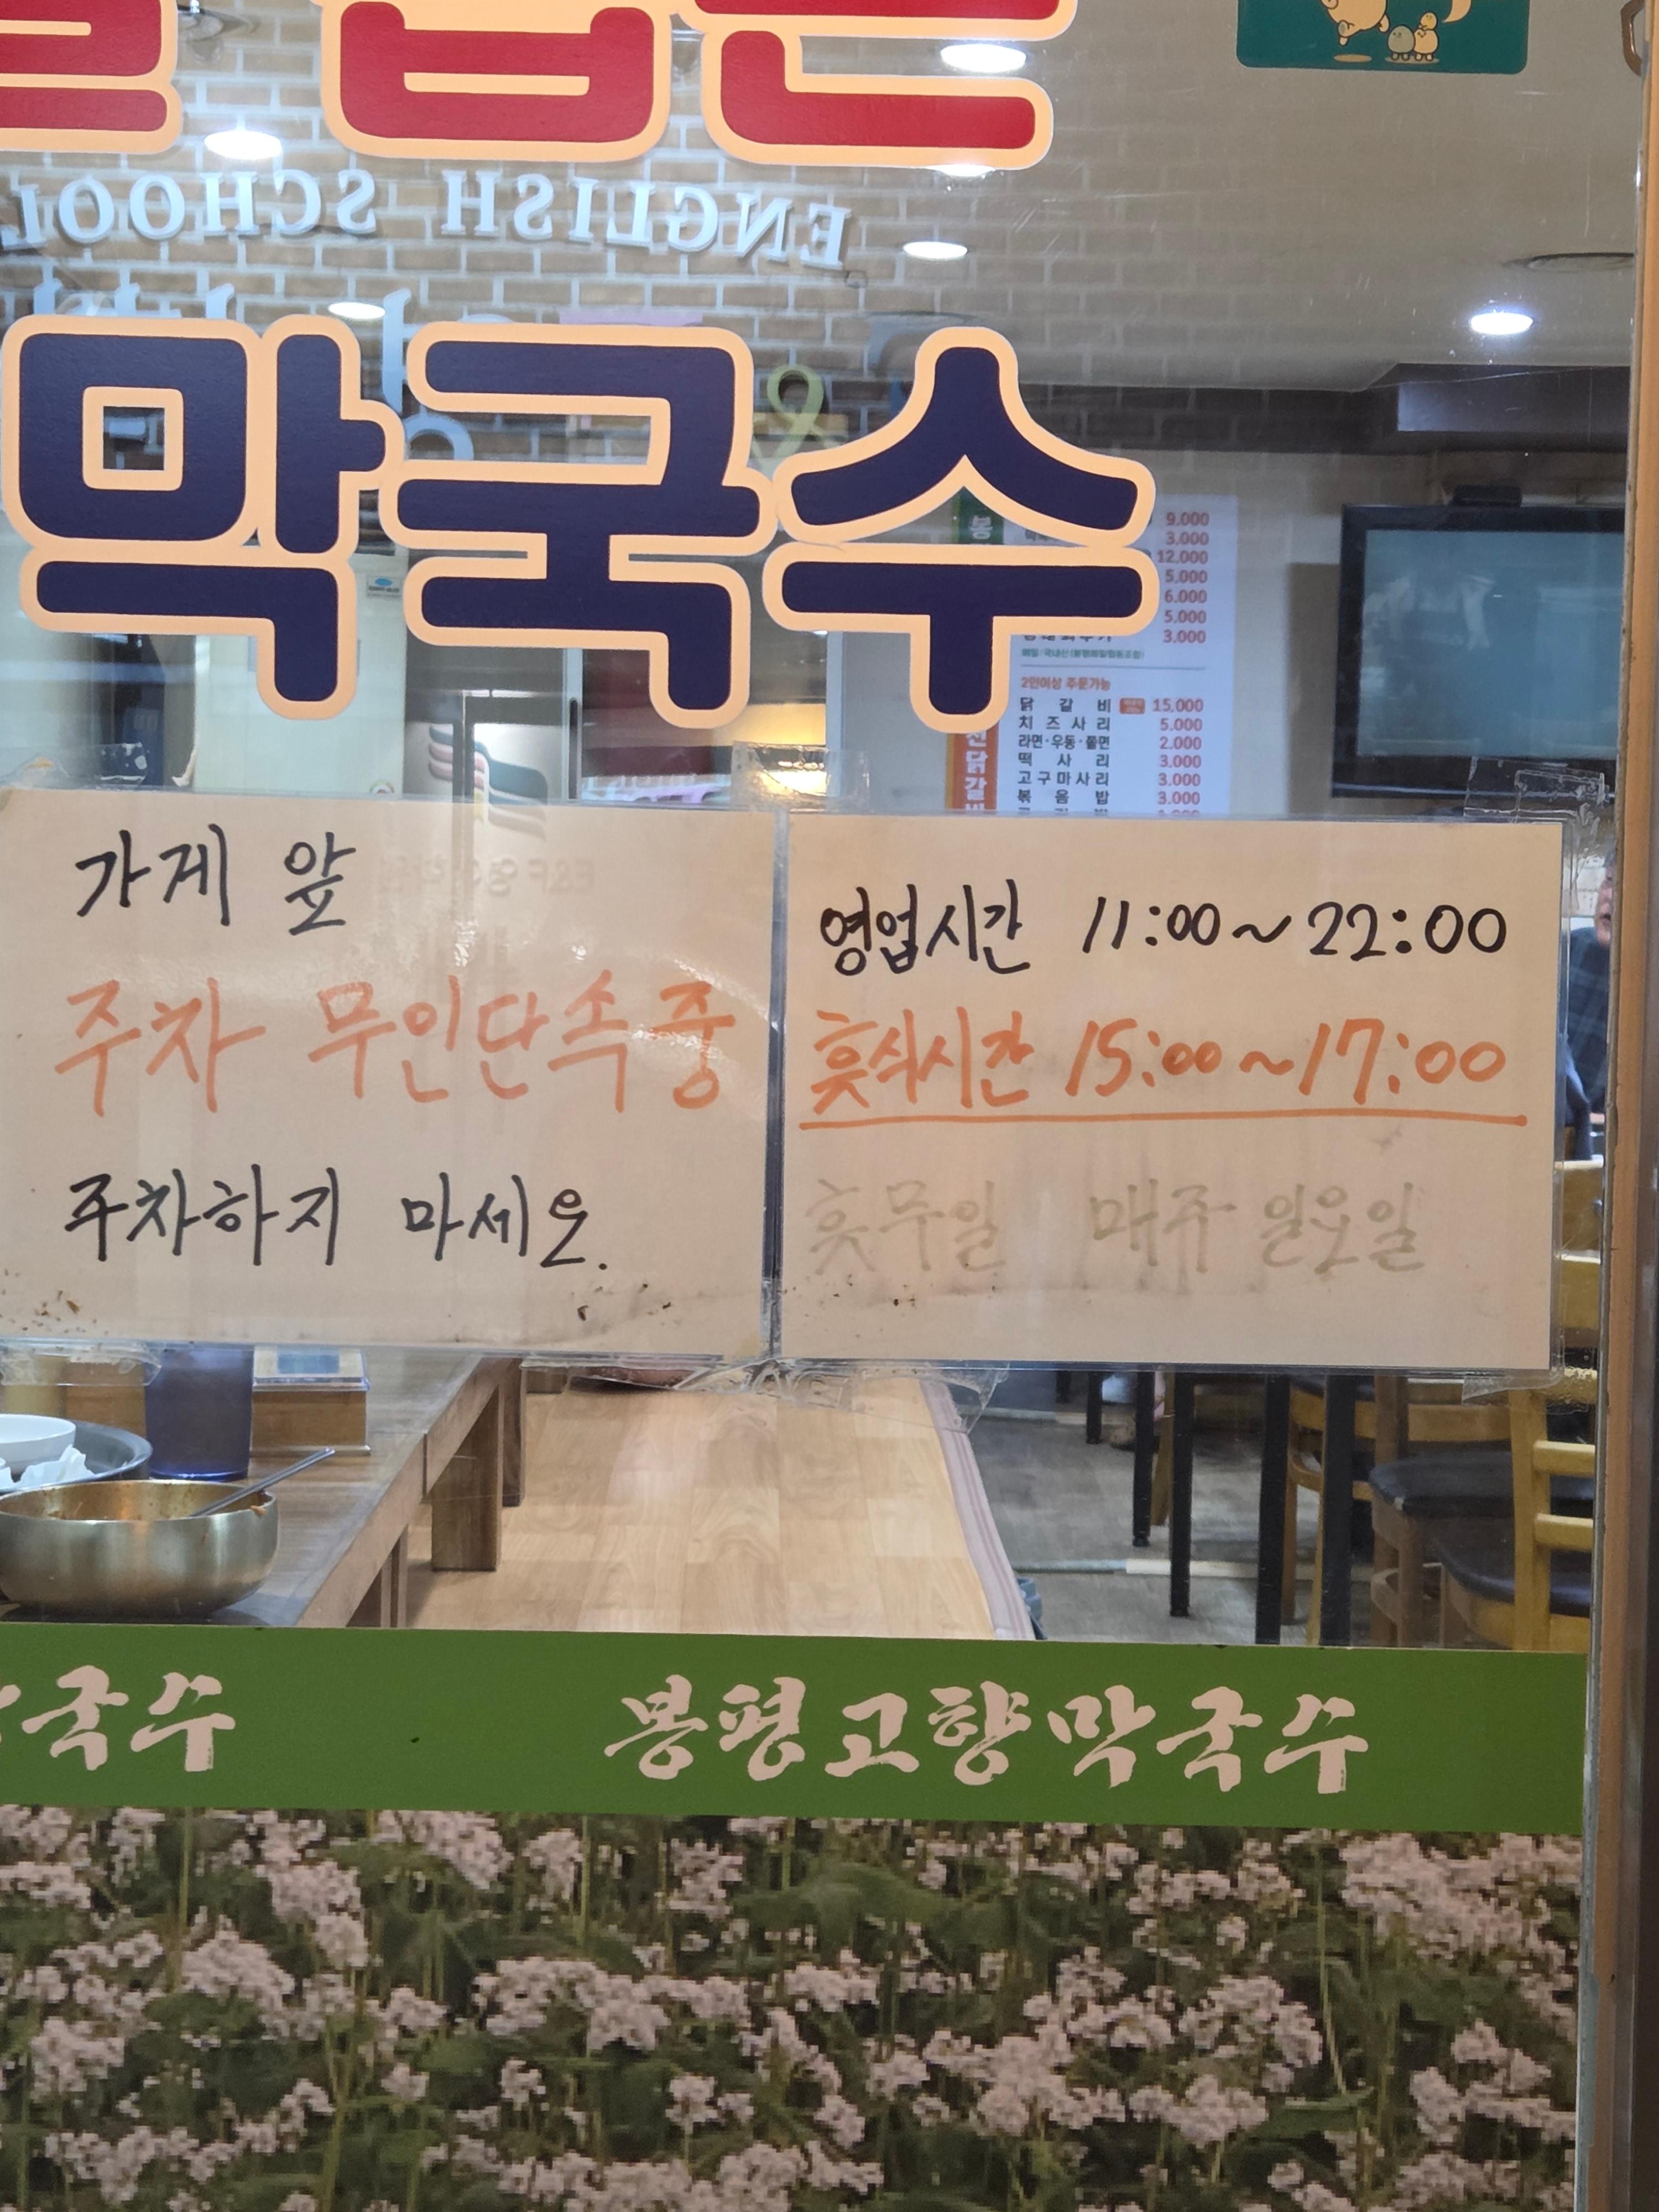 ENGLISH SCHOOL
막국수
9.000
3.000
12,000
5,000
6.000
5,000
3.000
2인이상 주문가능
닭갈비 15,000
치즈사리 5.000
라면·우동·쫄면 2.000
떡사리 3.000
고구마사리 3.000
볶음밥 3.000
가게 앞
주차 무인단속중
주차하지 마세요.
영업시간 11:00~22:00
휴식시간 15:00~17:00
휴무일 매주 일요일
국수 봉평고향막국수